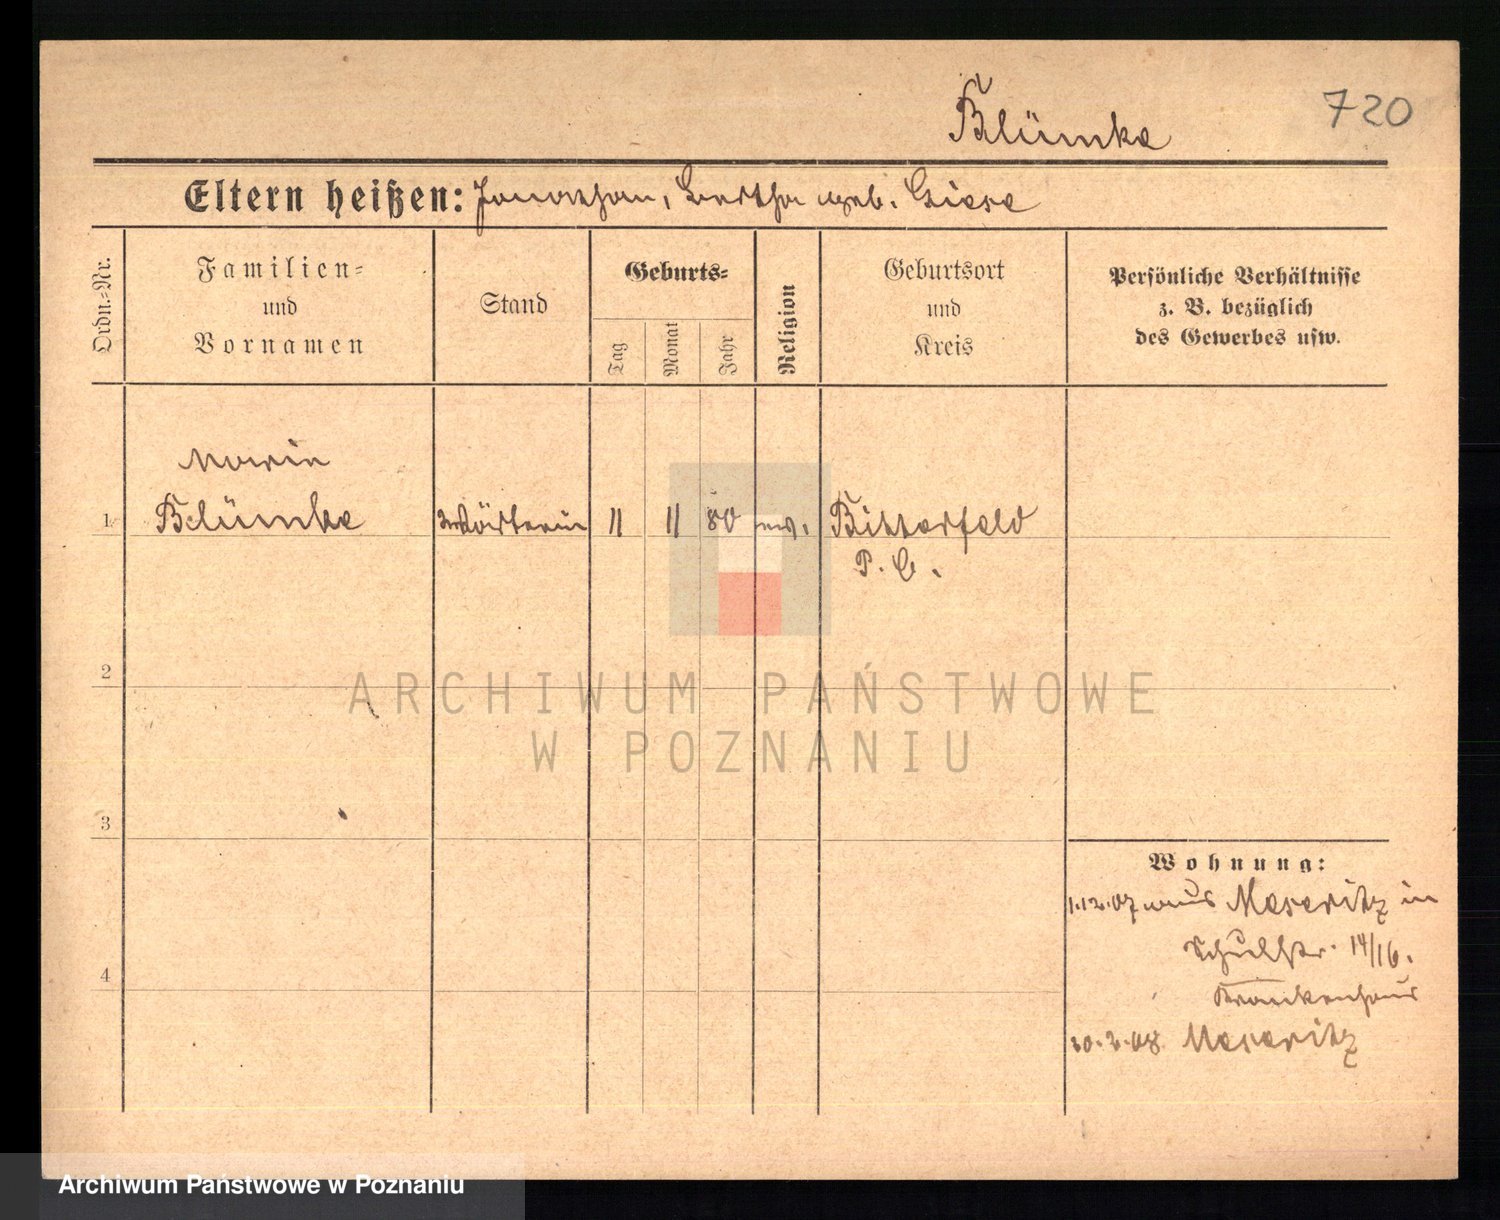 720
Blümke
Eltern heißen: Jonathan, Bertha geb. Giese
Ordn.-Nr.
Familien-
und
Vornamen
Stand
Geburts-
Tag
Monat
Jahr
Religion
Geburtsort
und
Kreis
Persönliche Verhältnisse
z. B. bezüglich
des Gewerbes usw.
Maria
1 Blümke Wärterin 11 11 80 ev. Bitterfeld
P. C.
2
3
4
Wohnung:
1.12.07 aus Meseritz in
Schulstr. 14/16.
Krankenhaus
20.2.08 Meseritz
ARCHIWUM PAŃSTWOWE
W POZNANIU
Archiwum Państwowe w Poznaniu